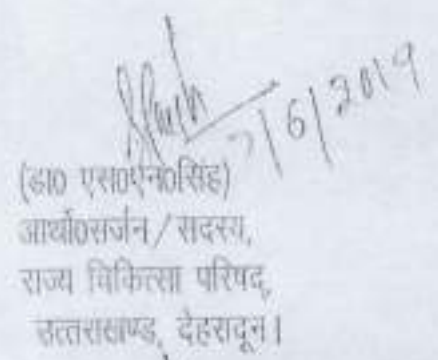 7/6/2019
(डा0 एस0एन0सिंह)
आर्थो0सर्जन/सदस्य,
राज्य चिकित्सा परिषद्,
उत्तराखण्ड, देहरादून।